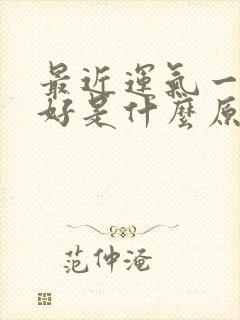 最近運氣一
好是什麼原
范仲淹